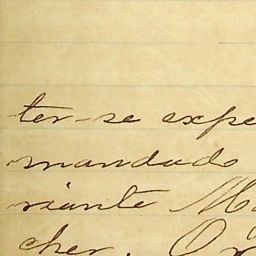 ter-se expe
mandado
riante M
cher. O